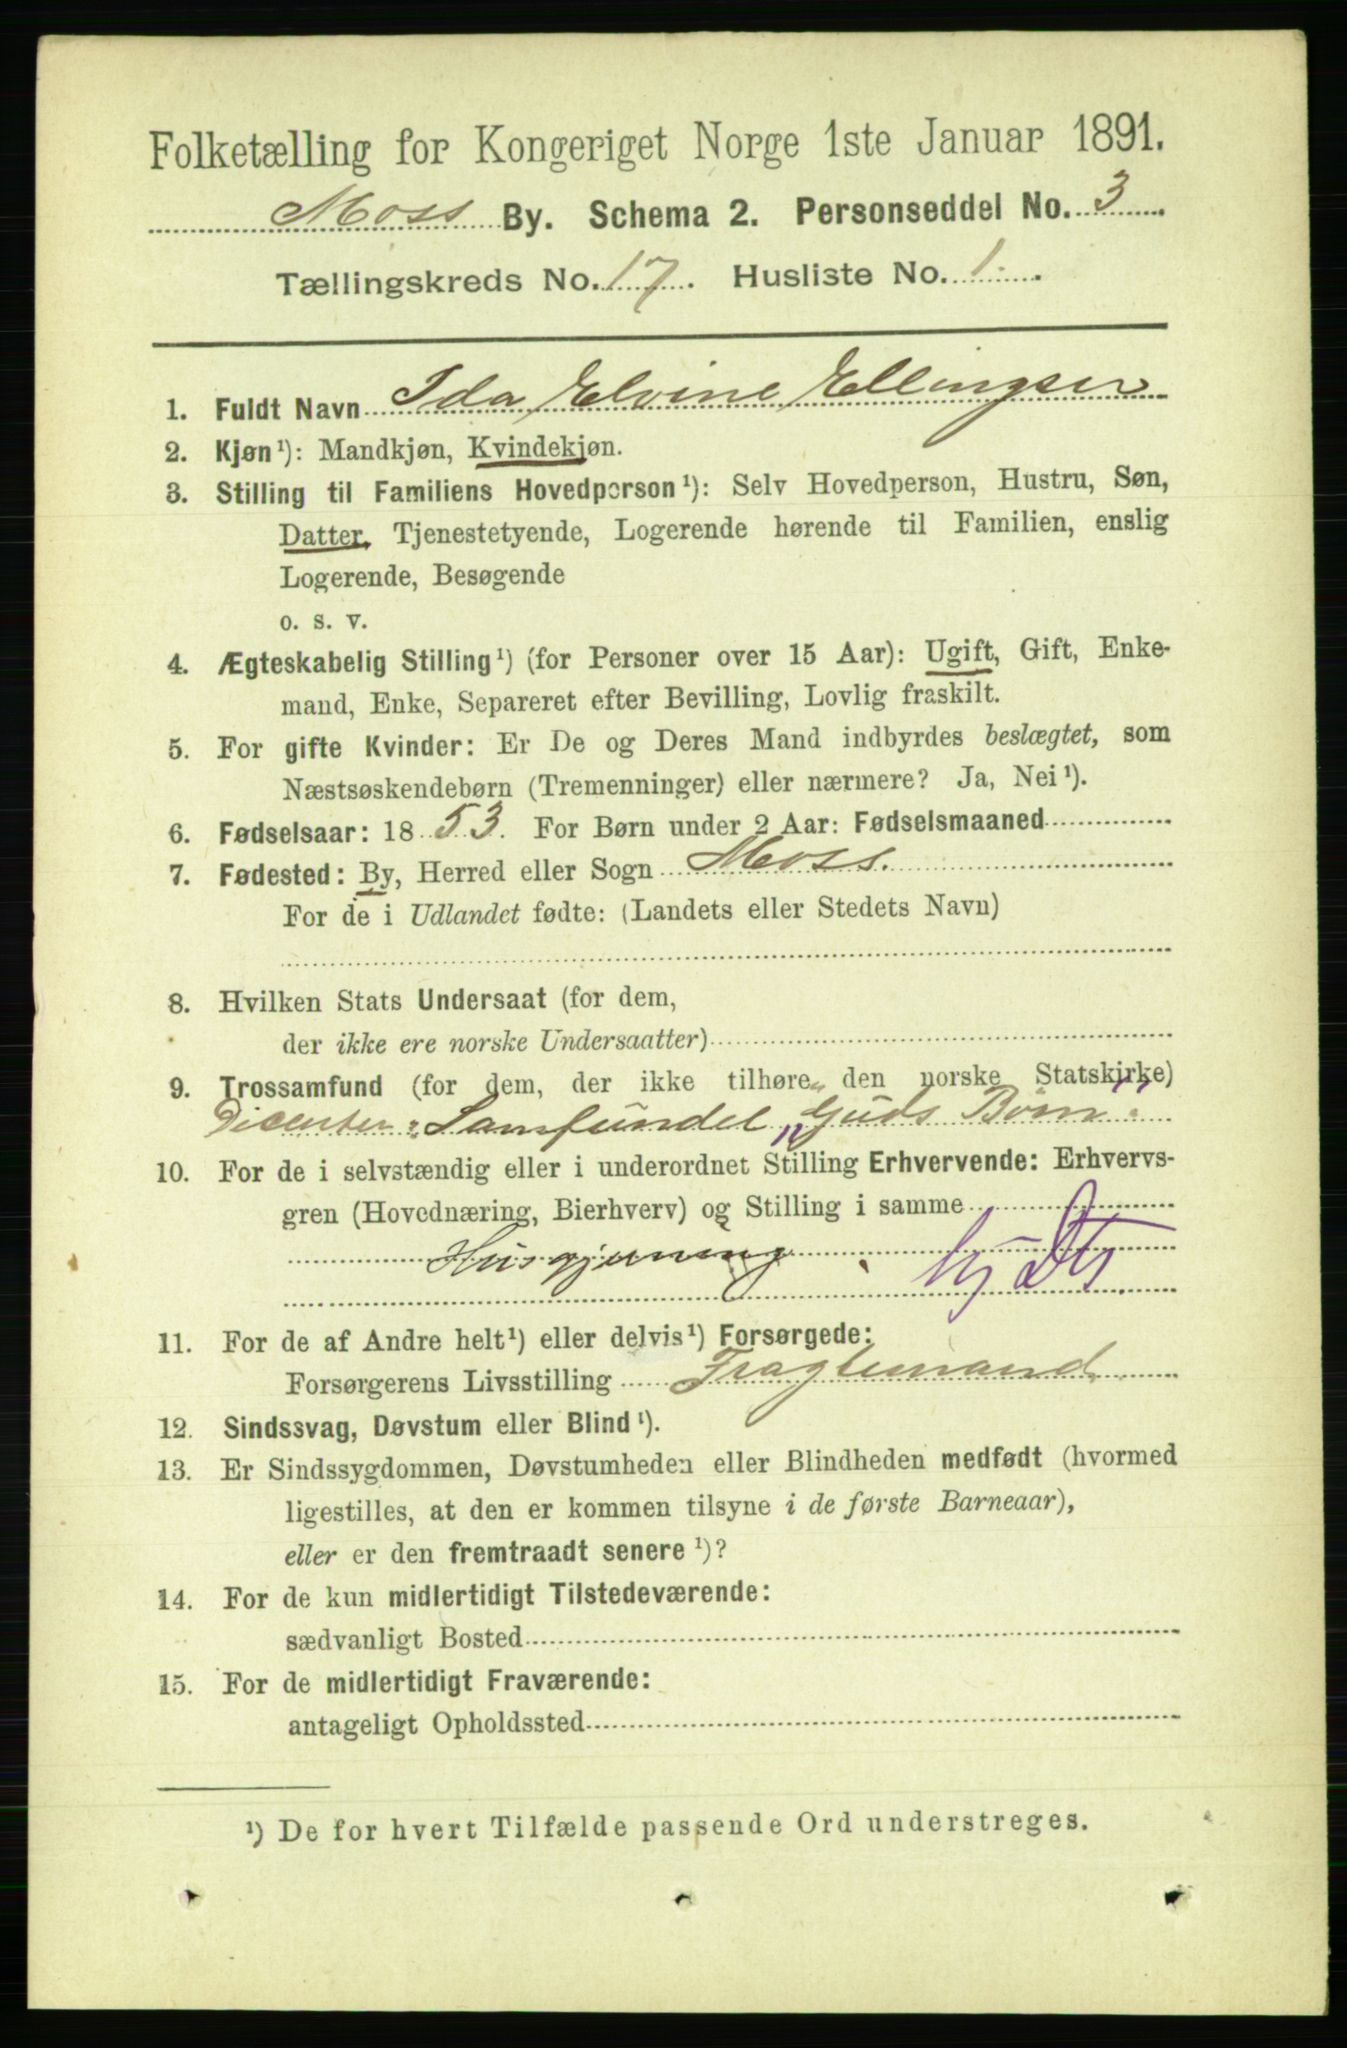 Folketælling for Kongeriget Norge 1ste Januar 1891.
Moss By. Schema 2. Personseddel No. 3
Tællingskreds No. 17. Husliste No. 1.
1. Fuldt Navn Ida Elvine Ellingsen
2. Kjøn¹): Mandkjøn, Kvindekjøn.
3. Stilling til Familiens Hovedperson¹): Selv Hovedperson, Hustru, Søn,
Datter, Tjenestetyende, Logerende hørende til Familien, enslig
Logerende, Besøgende
o. s. v.
4. Ægteskabelig Stilling¹) (for Personer over 15 Aar): Ugift, Gift, Enke-
mand, Enke, Separeret efter Bevilling, Lovlig fraskilt.
5. For gifte Kvinder: Er De og Deres Mand indbyrdes beslægtet, som
Næstsøskendebørn (Tremenninger) eller nærmere? Ja, Nei¹).
6. Fødselsaar: 1853. For Børn under 2 Aar: Fødselsmaaned
7. Fødested: By, Herred eller Sogn Moss.
For de i Udlandet fødte: (Landets eller Stedets Navn)
8. Hvilken Stats Undersaat (for dem,
der ikke ere norske Undersaatter)
9. Trossamfund (for dem, der ikke tilhøre den norske Statskirke)
Dicenter: Samfundet "Guds Børn"
10. For de i selvstændig eller i underordnet Stilling Erhvervende: Erhvervs-
gren (Hovednæring, Bierhverv) og Stilling i samme
Husgjerning
11. For de af Andre helt¹) eller delvis¹) Forsørgede:
Forsørgerens Livsstilling Fragtemand
12. Sindssvag, Døvstum eller Blind¹).
13. Er Sindssygdommen, Døvstumheden eller Blindheden medfødt (hvormed
ligestilles, at den er kommen tilsyne i de første Barneaar),
eller er den fremtraadt senere¹)?
14. For de kun midlertidigt Tilstedeværende:
sædvanligt Bosted
15. For de midlertidigt Fraværende:
antageligt Opholdssted
¹) De for hvert Tilfælde passende Ord understreges.